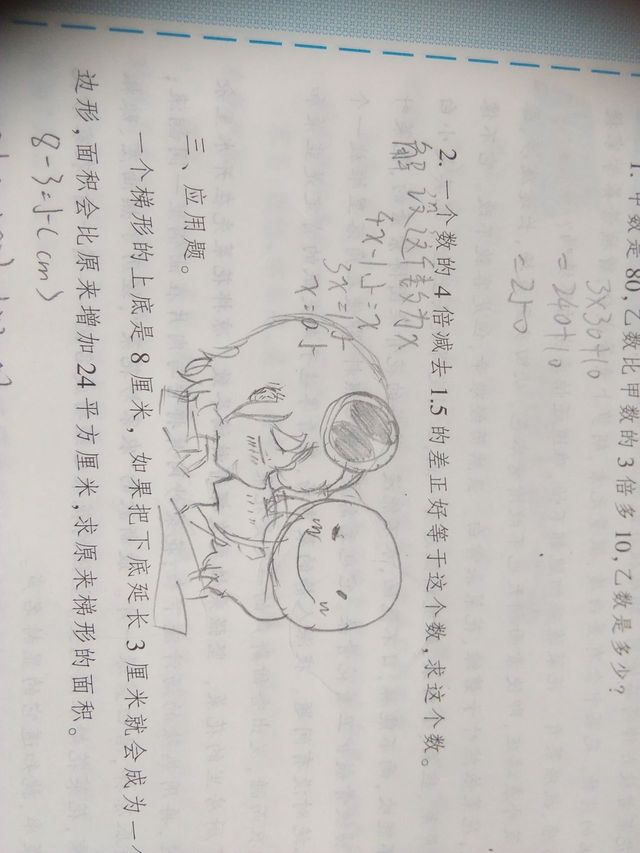 1. 甲数是 80,乙数比甲数的 3 倍多 10,乙数是多少?
3x30+10
=240+10
=250
2. 一个数的 4 倍减去 1.5 的差正好等于这个数,求这个数。
解 设这个数为x
4x-1.5=x
3x=1.5
x=0.5
三、应用题。
一个梯形的上底是 8 厘米, 如果把下底延长 3 厘米就会成为一个
边形,面积会比原来增加 24 平方厘米,求原来梯形的面积。
8-3=5(cm)